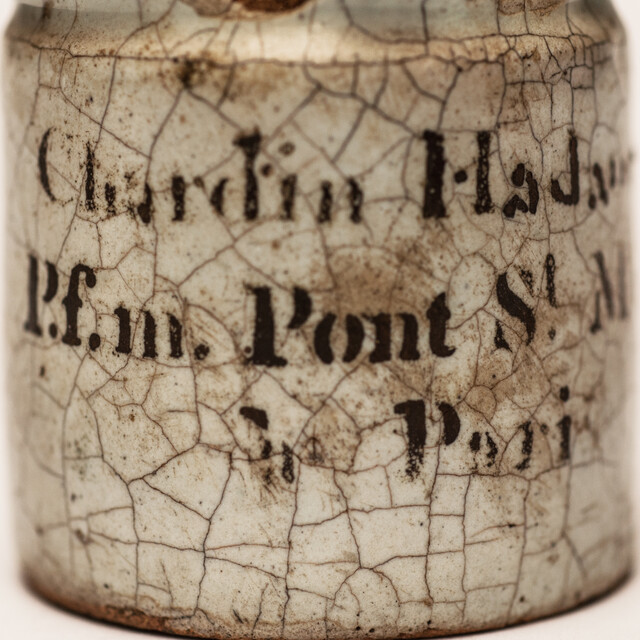 Chardin Hada
P.f.m. Pont St. M
à Pari